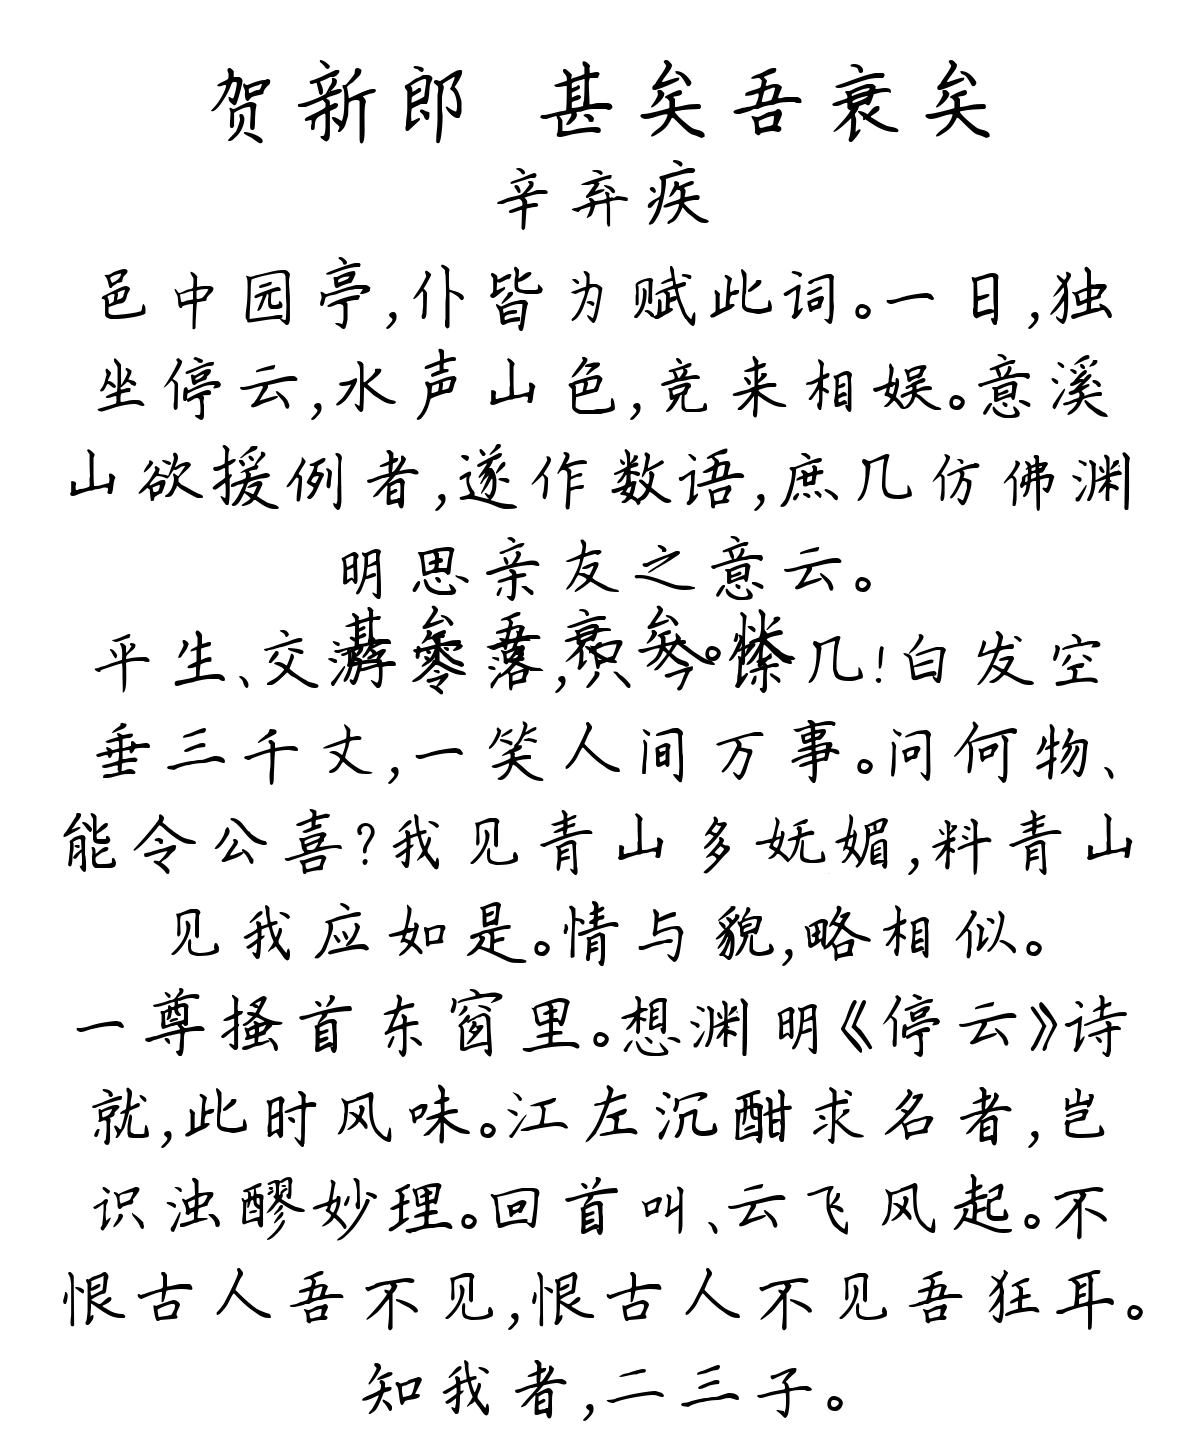 贺新郎 甚矣吾衰矣
辛弃疾
邑中园亭,仆皆为赋此词。一日,独
坐停云,水声山色,竞来相娱。意溪
山欲援例者,遂作数语,庶几仿佛渊
明思亲友之意云。
甚矣吾衰矣。怅
平生、交游零落,只今馀几!白发空
垂三千丈,一笑人间万事。问何物、
能令公喜?我见青山多妩媚,料青山
见我应如是。情与貌,略相似。
一尊搔首东窗里。想渊明《停云》诗
就,此时风味。江左沉酣求名者,岂
识浊醪妙理。回首叫、云飞风起。不
恨古人吾不见,恨古人不见吾狂耳。
知我者,二三子。